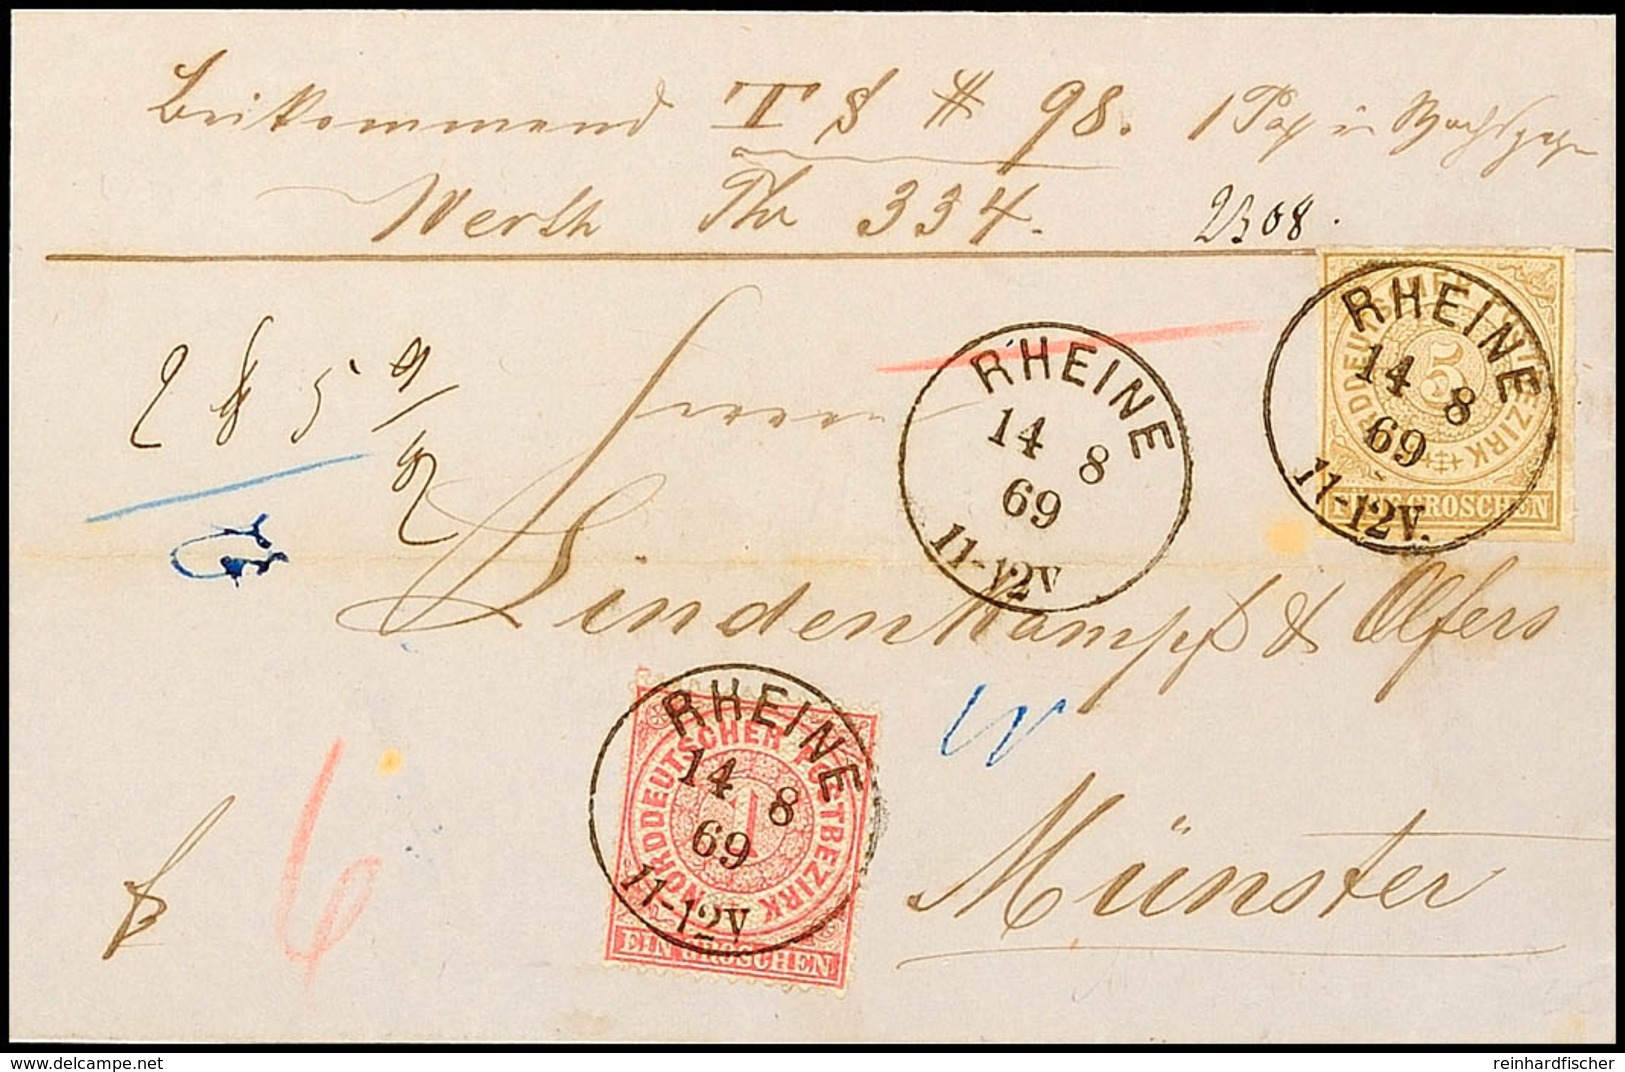 Beikommend T S # 98. 1 Pack in
Werth Thr 334. 2308.
2 5
Herren
Lindenkampf & Olfers
Münster
6
RHEINE
14 8
69
11-12V
NORDDEUTSCHER POSTBEZIRK
5
FÜNF GROSCHEN
RHEINE
14 8
69
11-12V.
NORDDEUTSCHER POSTBEZIRK
1
EIN GROSCHEN
RHEINE
14 8
69
11-12V
www.delcampe.net
reinhardfischer